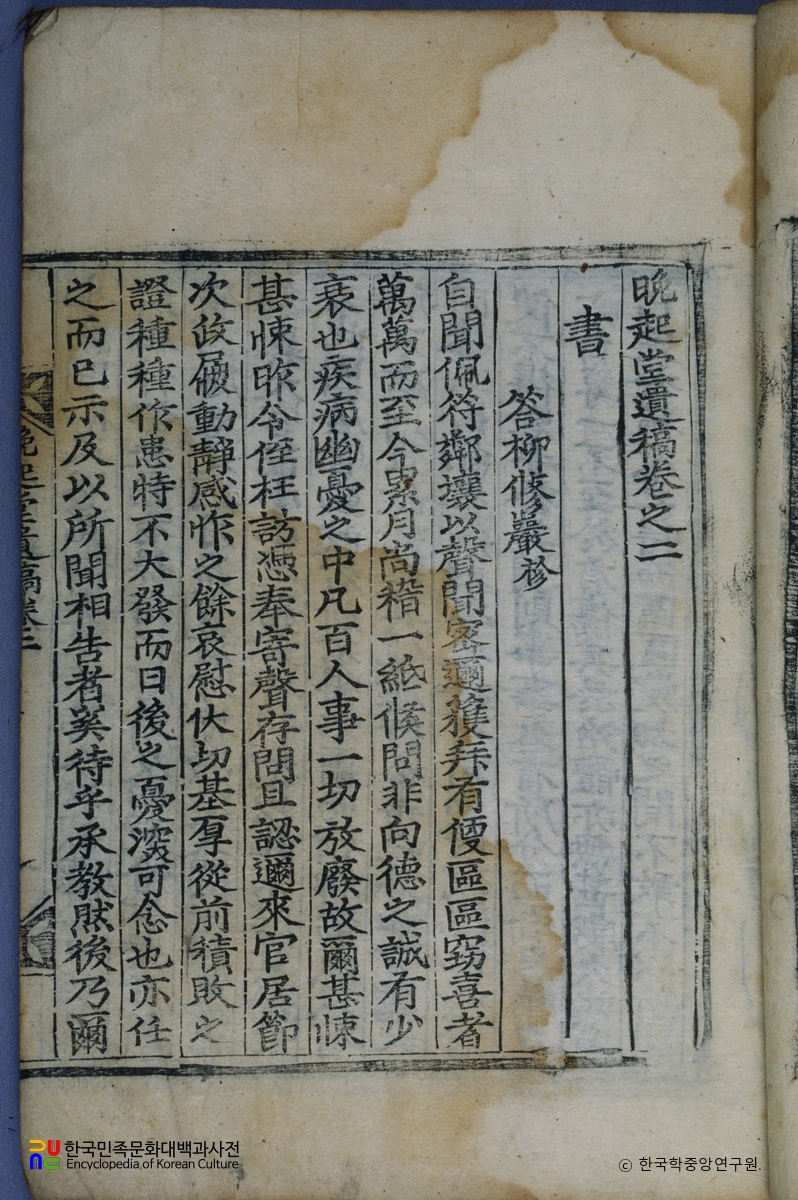 晩起堂遺稿卷之二
書
答柳修巖袗
自聞佩符鄰壤以聲聞密邇獲拜有便區區竊喜者
萬萬而至今累月尚稽一紙候問非向德之誠有少
衰也疾病幽憂之中凡百人事一切放廢故爾甚悚
甚悚昨令侄枉訪憑奉寄聲存問且認邇來官居節
次攸履動靜感怍之餘哀慰伏切基厚從前積敗之
證種種作患特不大發而日後之憂深可念也亦任
之而已示及以所聞相告者奚待乎承教然後乃爾
晩起堂遺稿卷二
한국민족문화대백과사전
Encyclopedia of Korean Culture
ⓒ 한국학중앙연구원.